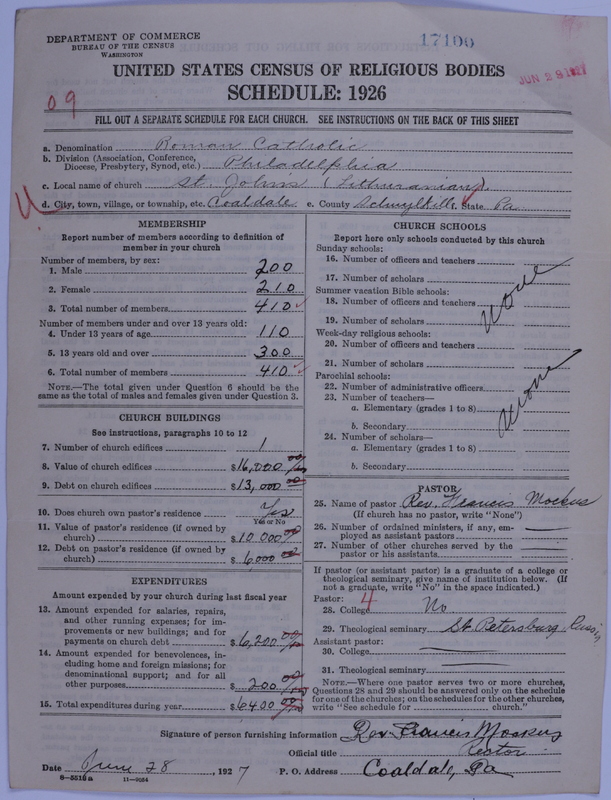 DEPARTMENT OF COMMERCE
BUREAU OF THE CENSUS
WASHINGTON
17100
JUN 29 1927
UNITED STATES CENSUS OF RELIGIOUS BODIES
SCHEDULE: 1926
09
FILL OUT A SEPARATE SCHEDULE FOR EACH CHURCH. SEE INSTRUCTIONS ON THE BACK OF THIS SHEET
a. Denomination Roman Catholic
b. Division (Association, Conference, Diocese, Presbytery, Synod, etc.) Philadelphia
c. Local name of church St. John's (Lithuranian).
d. City, town, village, or township, etc. Coaldale e. County Schuylkill f. State Pa.
MEMBERSHIP
Report number of members according to definition of
member in your church
Number of members, by sex:
1. Male 200
2. Female 210
3. Total number of members 410
Number of members under and over 13 years old:
4. Under 13 years of age 110
5. 13 years old and over 300
6. Total number of members 410
NOTE.—The total given under Question 6 should be
same as the total of males and females given under Question 3.
CHURCH BUILDINGS
See instructions, paragraphs 10 to 12
7. Number of church edifices 1
8. Value of church edifices $16,000 00
9. Debt on church edifices $13,000 00
10. Does church own pastor's residence Yes
Yes or No
11. Value of pastor's residence (if owned by
church) $10000 00
12. Debt on pastor's residence (if owned by
church) $6000 00
EXPENDITURES
Amount expended by your church during last fiscal year
13. Amount expended for salaries, repairs,
and other running expenses; for im-
provements or new buildings; and for
payments on church debt $6,200 00
14. Amount expended for benevolences, in-
cluding home and foreign missions; for
denominational support; and for all
other purposes $200 00
15. Total expenditures during year $6400 00
CHURCH SCHOOLS
Report here only schools conducted by this church
Sunday schools:
16. Number of officers and teachers
17. Number of scholars
Summer vacation Bible schools:
18. Number of officers and teachers
19. Number of scholars
None
Week-day religious schools:
20. Number of officers and teachers
21. Number of scholars
Parochial schools:
22. Number of administrative officers
23. Number of teachers—
a. Elementary (grades 1 to 8)
b. Secondary
24. Number of scholars—
a. Elementary (grades 1 to 8)
b. Secondary
None
PASTOR
25. Name of pastor Rev. Francis Mockus
(If church has no pastor, write "None")
26. Number of ordained ministers, if any, em-
ployed as assistant pastors
27. Number of other churches served by the
pastor or his assistants
If pastor (or assistant pastor) is a graduate of a college or
theological seminary, give name of institution below. (If
not a graduate, write "No" in the space indicated.)
Pastor:
4
28. College No
29. Theological seminary St. Petersburg, Russia
Assistant pastor:
30. College
31. Theological seminary
NOTE.—Where one pastor serves two or more churches,
Questions 28 and 29 should be answered only on the schedule
for one of the churches; on the schedules for the other churches,
write "See schedule for church."
Signature of person furnishing information Rev. Francis Mockus
Official title Rector
Date June 28, 1927 P. O. Address Coaldale, Pa
8-5512a 11-9034